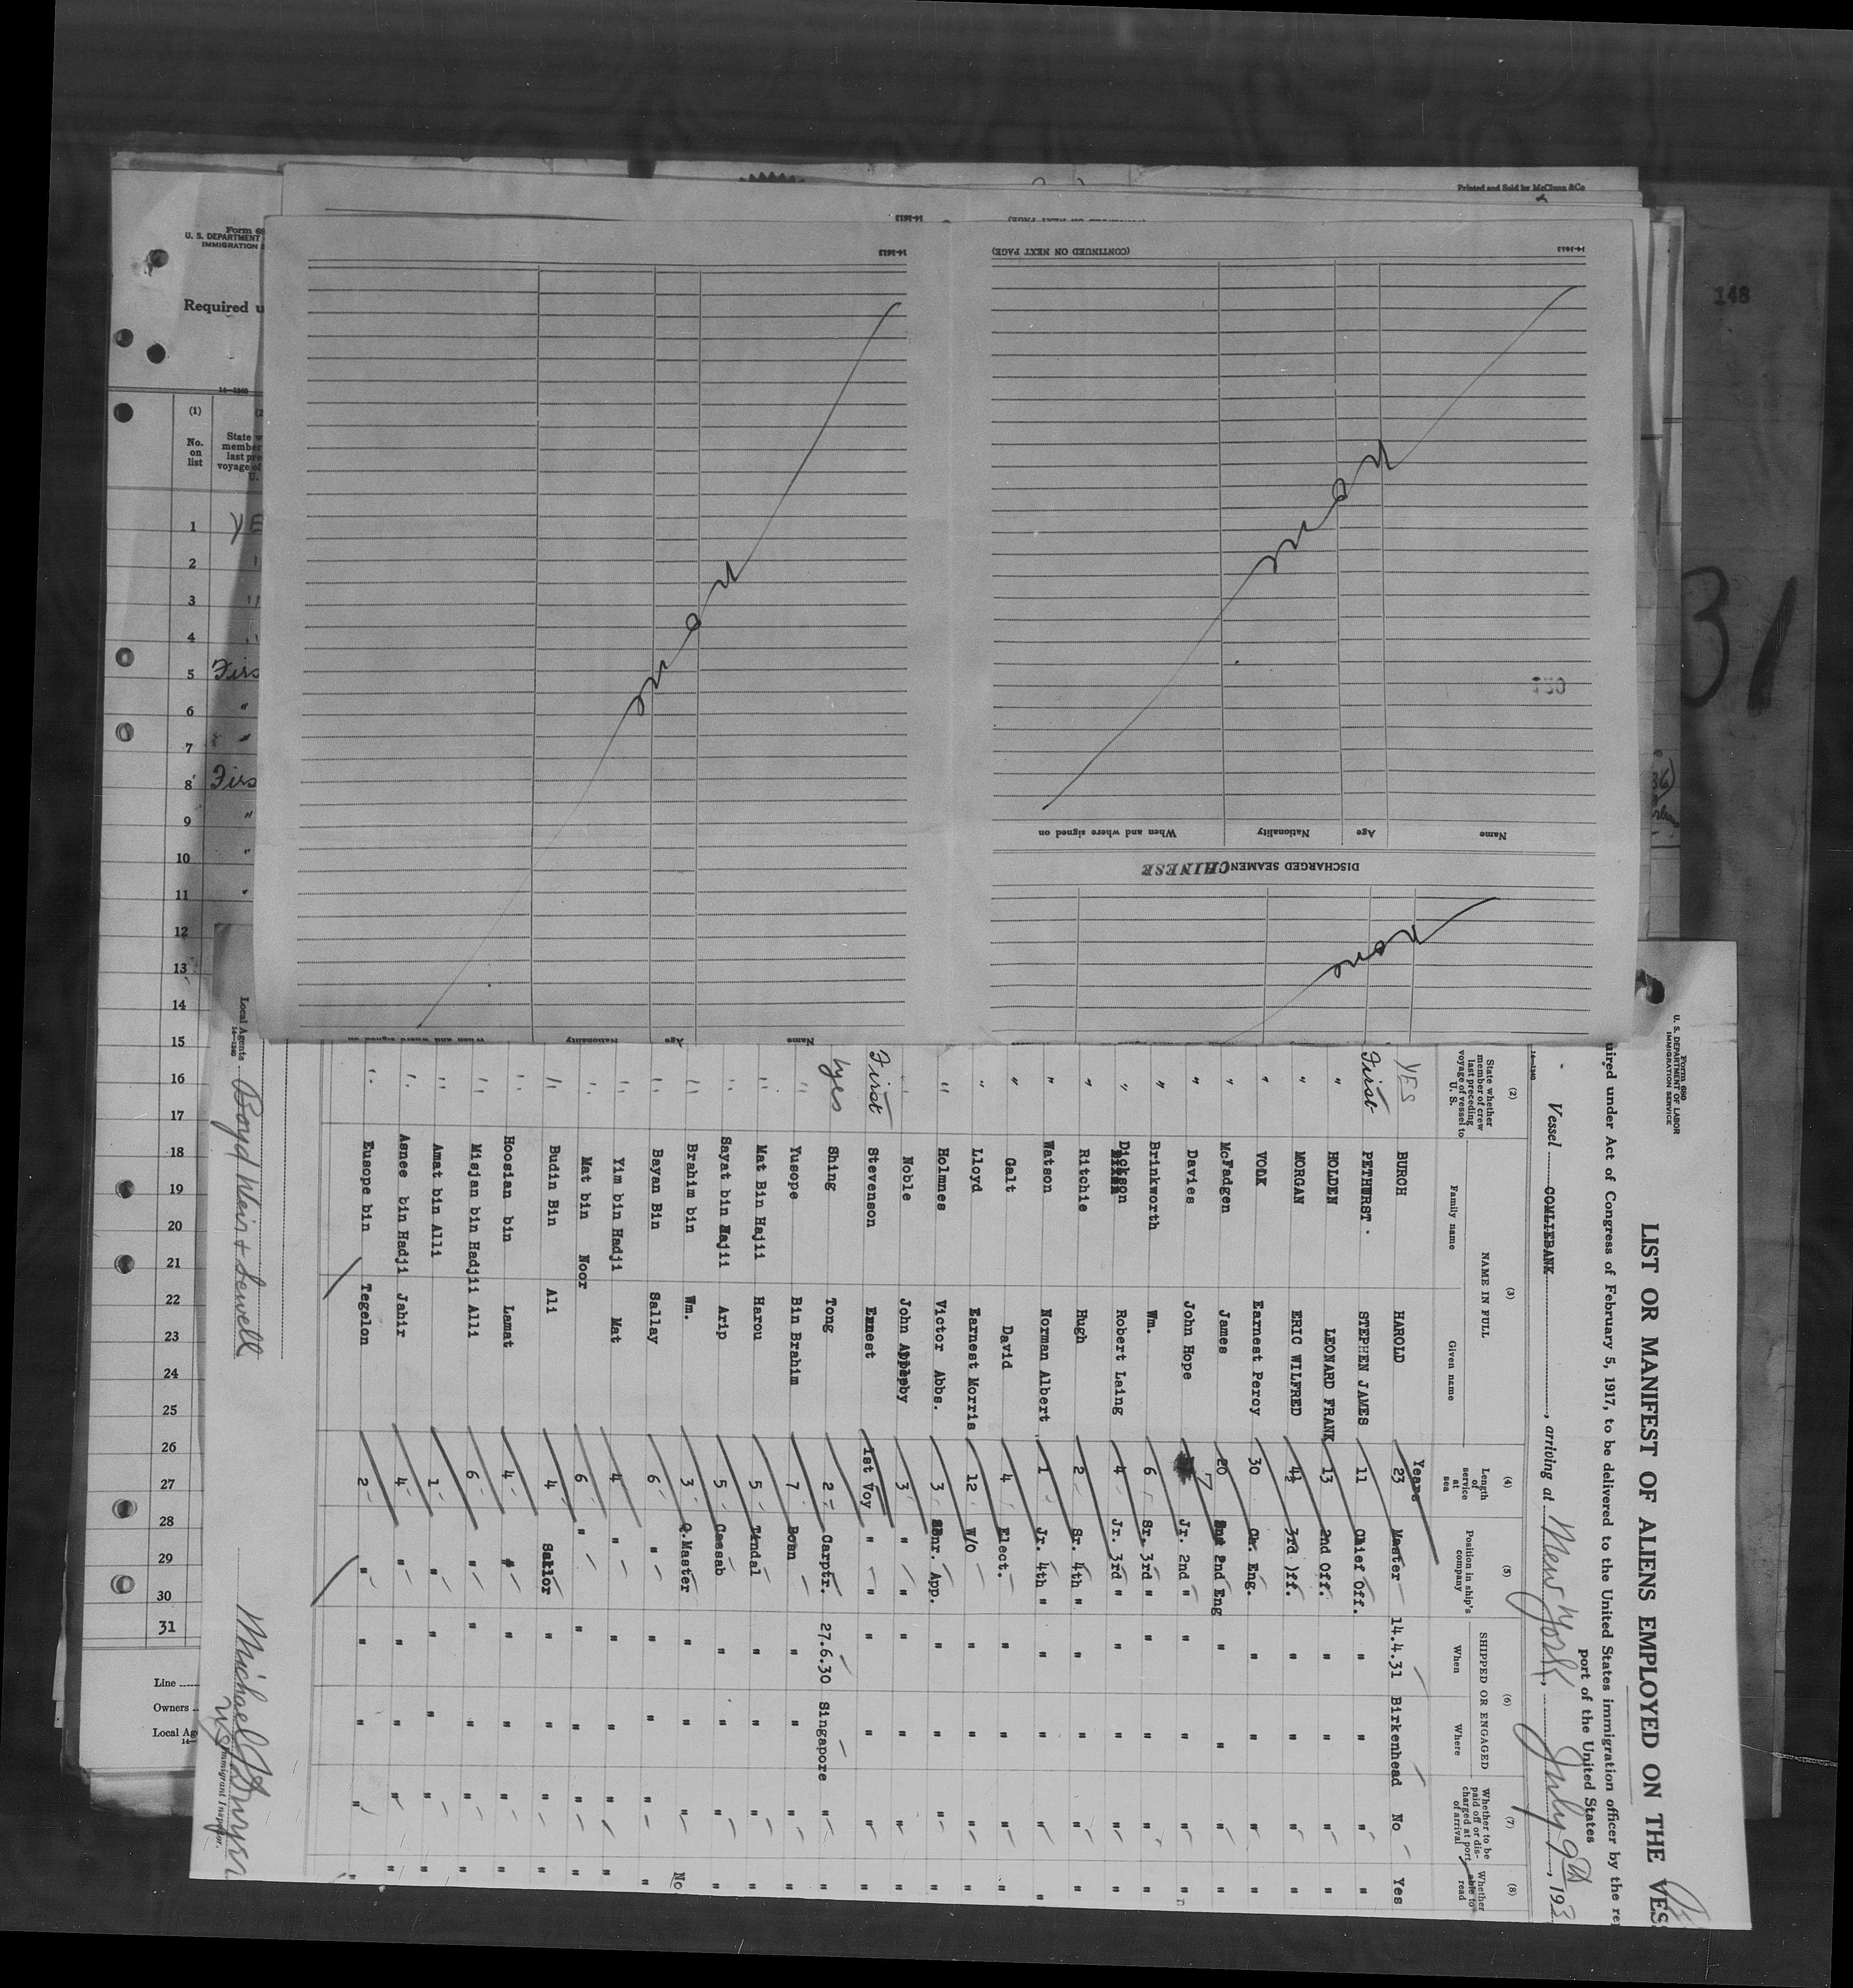 Printed and Sold by McClunn & Co
148
31
Form 68
U. S. DEPARTMENT
IMMIGRATION
Required u
14—1240
(1)
No.
on
list
State w
member
last pre
voyage of
U.
1 YE
2 "
3 "
4 "
5 Firs
6 "
7 "
8 Firs
9 "
10 "
11 "
12
13
14
15
16
17
18
19
20
21
22
23
24
25
26
27
28
29
30
31
Line
Owners
Local Ag
14-1613
(CONTINUED ON NEXT PAGE)
14-1613
(CONTINUED ON NEXT PAGE)
14-1613
None
None
None
120
Name Age Nationality When and where signed on
DISCHARGED SEAMEN CHINESE
Name Age Nationality When and where signed on
Form 680
U. S. DEPARTMENT OF LABOR
IMMIGRATION SERVICE
LIST OR MANIFEST OF ALIENS EMPLOYED ON THE VES
uired under Act of Congress of February 5, 1917, to be delivered to the United States immigration officer by the re
port of the United States
Vessel COMLIEBANK, arriving at New York, July 9th, 193
14—1240
(2) (3) (4) (5) (6) (7) (8)
State whether member of crew last preceding voyage of vessel to U. S.
NAME IN FULL
Family name Given name
Length of service at sea
Position in ship's company
SHIPPED OR ENGAGED
When Where
Whether to be paid off or discharged at port of arrival
Whether able to read
Years
YES BURCH HAROLD 23 Master 14.4.31 Birkenhead No Yes
First PETHURST. STEPHEN JAMES 11 Chief Off. " " " "
" HOLDEN LEONARD FRANK 13 2nd Off. " " " "
" MORGAN ERIC WILFRED 4½ 3rd )ff. " " " "
" Earnest Percy 30 Ch. Eng. " " " "
" McFadgen James 20 2nd Eng " " " "
" Davies John Hope 7 Jr. 2nd " " " " "
" Brinkworth Wm. 6 Sr. 3rd " " " " "
" Dickson Robert Laing 4 Jr. 3rd " " " " "
" Ritchie Hugh 2 Sr. 4th " " " " "
" Watson Norman Albert 1 Jr. 4th " " " " "
" Galt David 4 Elect. " " " "
" Lloyd Earnest Morris 12 W/O " " " "
" Holmnes Victor Abbs. 3 Snr. App. " " " "
" Noble John Appleby 3 " " " " " "
First Stevenson Ernest 1st Voy " " " " " "
yes Shing Tong 2 Carptr. 27.6.30 Singapore " "
" Yusope Bin Brahim 7 Bosn " " " "
" Mat Bin Hajii Harou 5 Tindal " " " "
" Sayat bin Hajii Arip 5 Cassab " " " "
" Brahim bin Wm. 3 Q.Master " " " No
" Bayan Bin Sallay 6 " " " " "
" Yim bin Hadji Mat 4 " " " " "
" Mat bin Noor 6 " " " " "
" Budin Bin Ali 4 Sailor " " " "
" Hoosian bin Lamat 4 " " " " "
" Misjan bin Hadjii Alli 6 " " " " "
" Amat bin Alli 1 " " " " "
" Asnee bin Hadji Jahir 4 " " " " "
" Eusope bin Tegelon 2 " " " " "
Local Agents Boyd Weir & Sewell
14—1240
Immigrant Inspector.